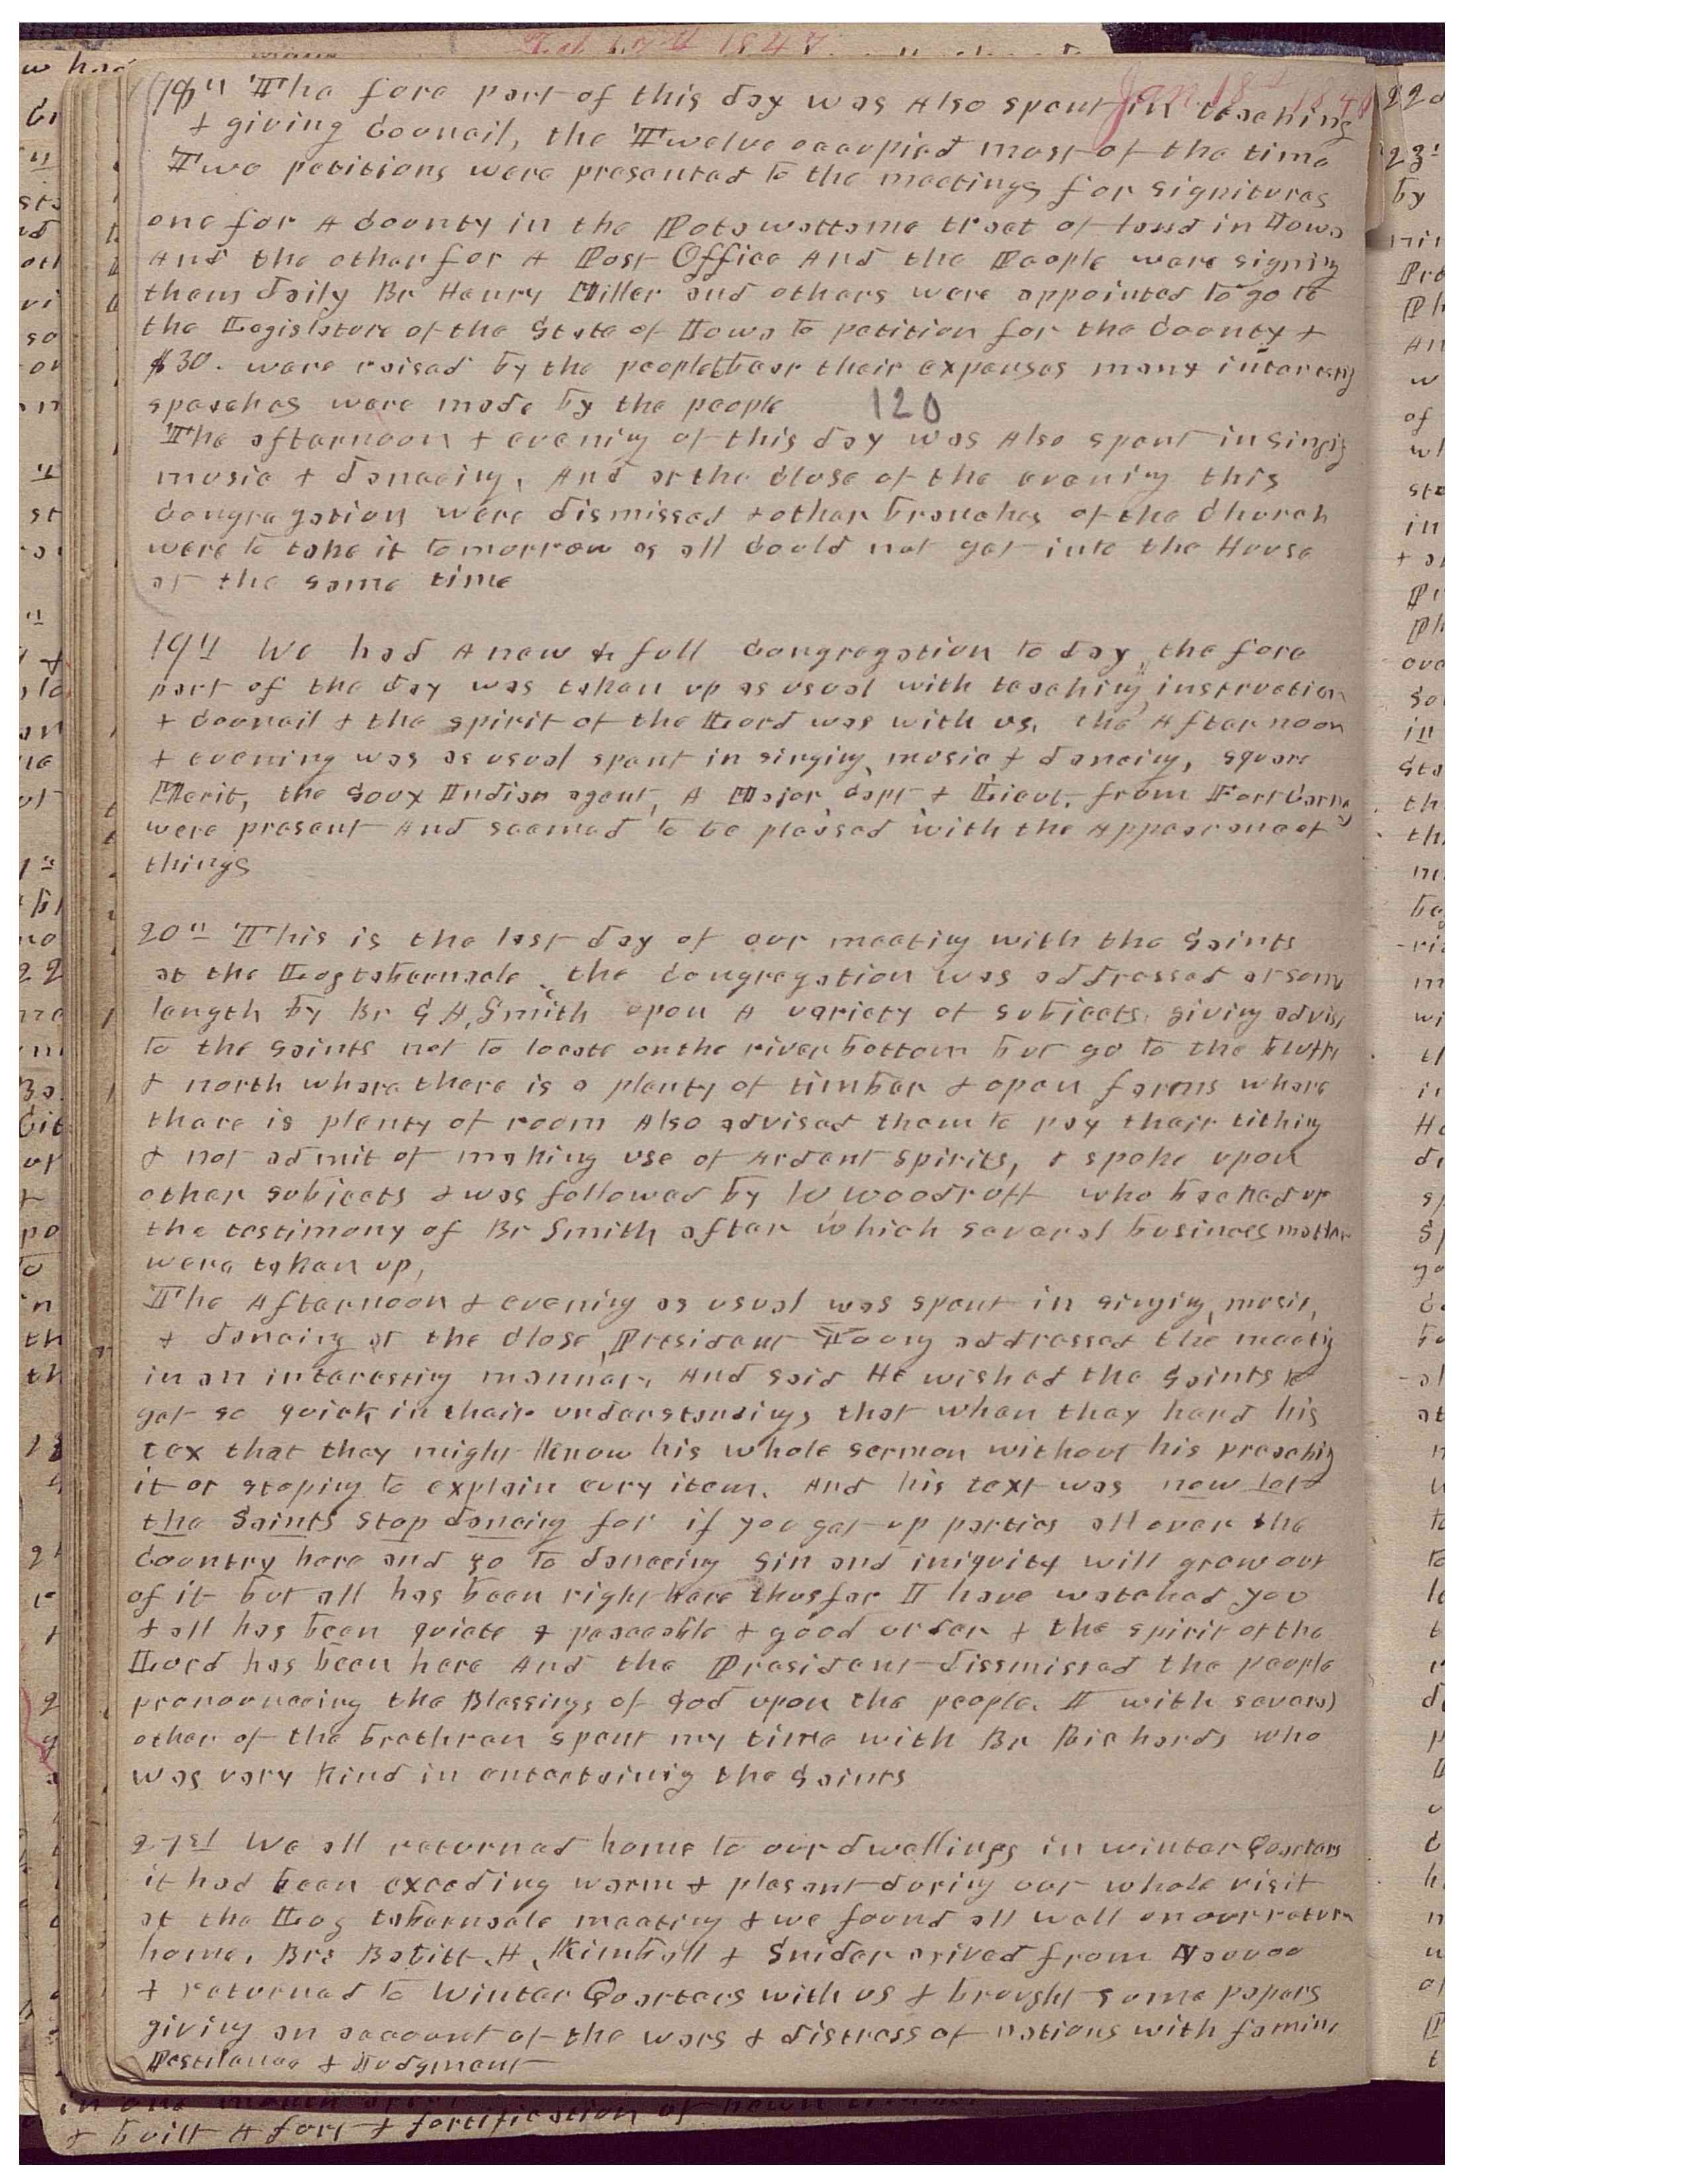 Jan 18th 1848
18th The fore part of this day was Also spent in teaching
& giving Council, the Twelve occupied most of the time
Two petitions were presented to the meetings for signitures
one for A County in the Potawattame tract of land in Iowa
And the other for A Post Office And the People were signing
them daily Br Henry Miller and others were appointed to go to
the Legislature of the State of Iowa to petition for the County &
$30. were raised by the people to bear their expenses many interesting
speeches were made by the people 120
The afternoon & evening of this day was Also spent in singing
music & dancing, And at the Close of the evening this
Congregation were dismissed & other branches of the Church
were to take it tomorrow as all Could not get into the House
at the same time
19th We had A new & full Congregation to day, the fore
part of the day was taken up as usual with teaching, instruction
& Council & the spirit of the Lord was with us, the Afternoon
& evening was as usual spent in singing, music & dancing, square
Merit, the Soux Indian agent, A Major Capt & Lieut. from Fort Carny
were present And seemed to be pleased with the Appearance of
things
20th This is the last day of our meeting with the Saints
at the Log tabernacle, the Congregation was addressed at some
length by Br G A, Smith upon A variety of Subjects. giving advise
to the Saints not to locate on the river bottom but go to the bluffs
& north where there is a plenty of timber & open farms where
there is plenty of room Also advised them to pay their tithing
& not admit of making use of Ardent spirits, & spoke upon
other subjects & was followed by W Woodruff who backed up
the testimony of Br Smith after which several business matters
were taken up,
The Afternoon & evening as usual was spent in singing, music,
& dancing at the Close, President Young addressed the meeting
in an interesting manner, And said He wished the Saints to
get so quick in their understandings that when they hard his
tex that they might Know his whole sermon without his preaching
it or stoping to explain evry item. And his text was now let
the Saints stop dancing for if you get up parties all over the
Country here and go to dancing Sin and iniquity will grow out
of it but all has been right here thus far I have watched you
& all has been quiete & peaceable & good order & the spirit of the
Lord has been here And the President dissmissed the people
pronouncing the Blessings of God upon the people. I with several
other of the brethren spent my time with Br Richards who
was very Kind in entertainig the Saints
21st We all returned home to our dwellings in Winter Quarters
it had been exceding warm & plesant during our whole visit
at the Log tabernacle meeting & we found all well on our return
home, Brs Babitt, H, Kimball & Snider arived from Nauvoo
& returned to Winter Quarters with us & brought some papers
giving an account of the wars & distress of nations with famine
Pestilence & Judgment
& built A fort & fortification of hewn